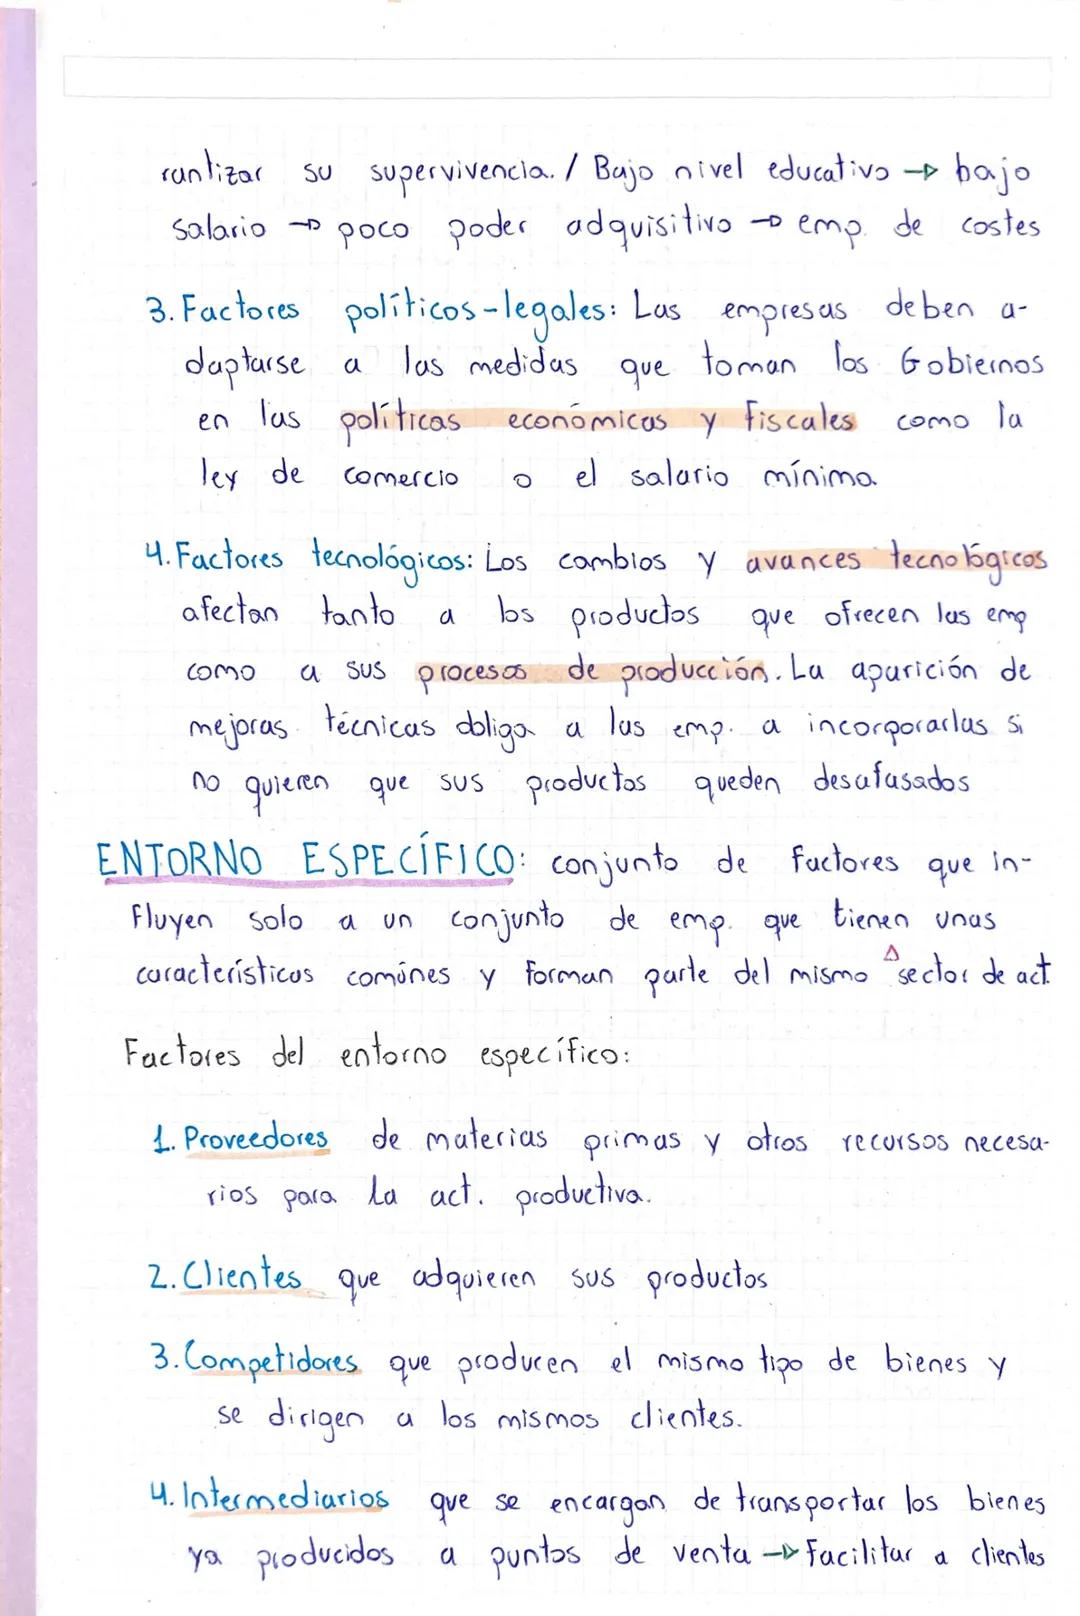 rantizar su supervivencia. / Bajo nivel educativo → bajo
salario → poco poder adquisitivo → emp. de costes
3. Factores políticos-legales: Las empresas deben a-
daptarse a las medidas que toman los Gobiernos
en las políticas económicas y fiscales como la
ley de comercio o el salario mínimo.
4. Factores tecnológicos: Los cambios y avances tecnológicos
afectan tanto a los productos que ofrecen las emp
como a sus procesos de producción. La aparición de
mejoras técnicas obliga a las emp. a incorporarlas si
no quieren que sus productos queden desafasados
ENTORNO ESPECÍFICO: conjunto de factores que in-
fluyen solo a un conjunto de emp. que tienen unas
características comúnes y forman parte del mismo sector de act.
Factores del entorno específico:
1. Proveedores de materias primas y otros recursos necesa-
rios para la act. productiva.
2. Clientes que adquieren sus productos
3. Competidores que producen el mismo tipo de bienes y
se dirigen a los mismos clientes.
4. Intermediarios que se encargan de transportar los bienes
ya producidos a puntos de venta → Facilitar a clientes